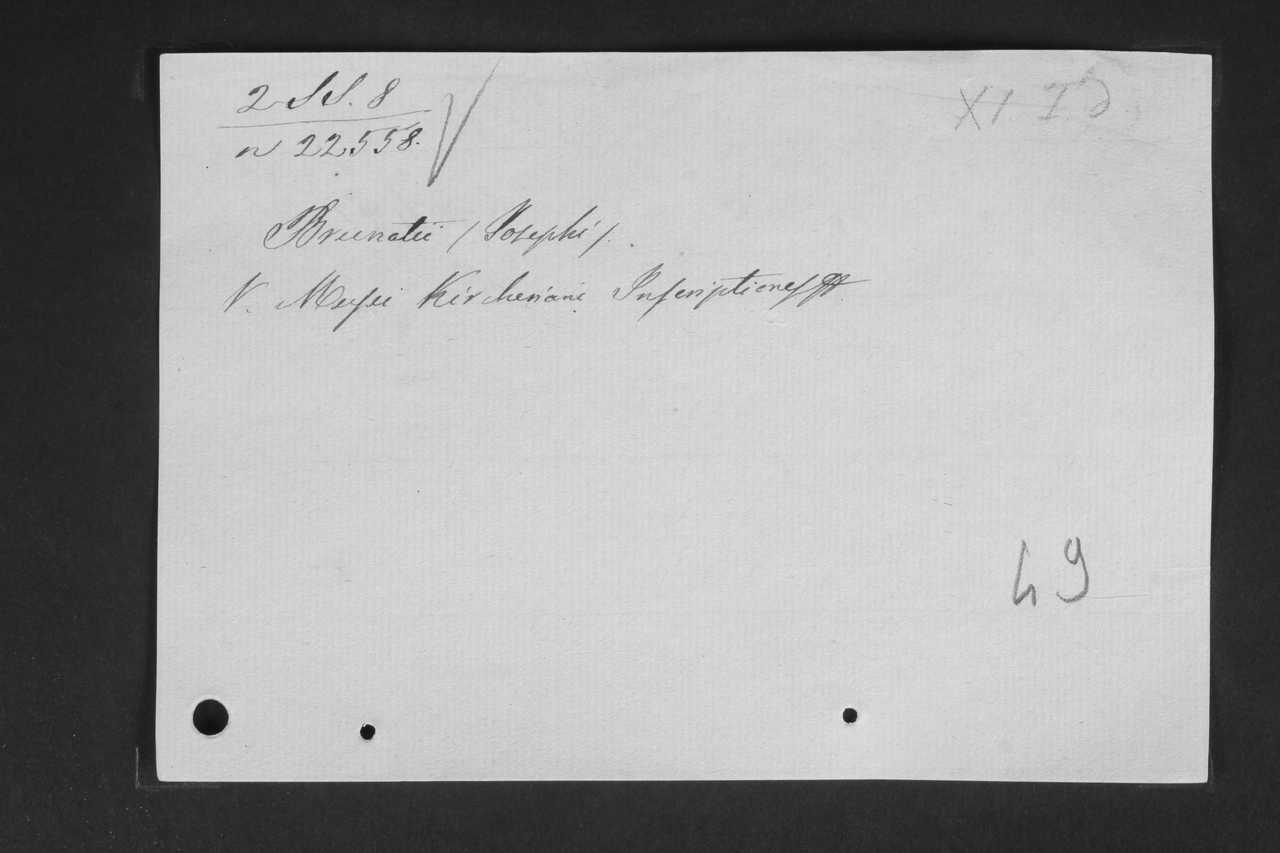 2 SS. 8
XI. I. d.
n 22558.
Brunatii /Josephi/.
V. Musei Kircheriani Inscriptiones
49